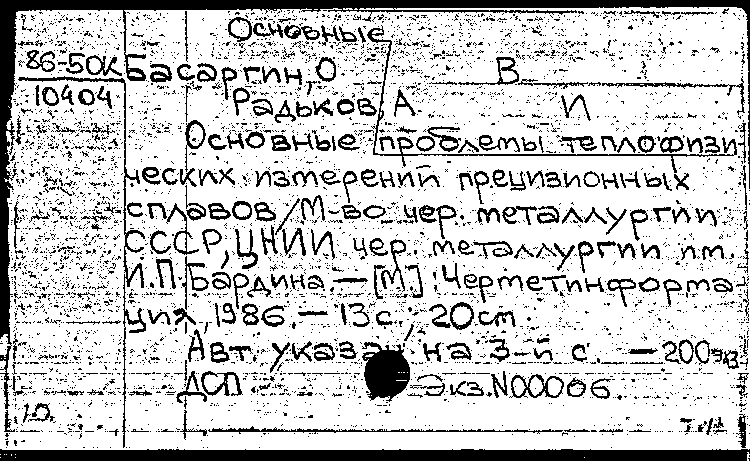 Основные
86-50К Басаргин, О В
10404 Радьков, А И
Основные проблемы теплофизи-
ческих измерений прецизионных
сплавов / М-во чер. металлургии
СССР, ЦНИИ чер. металлургии им.
И.П. Бардина. — [М.] : Черметинформа-
ция, 1986. — 13 с. ; 20 см.
Авт. указан на 3-й с. — 200 экз
ДСП Экз. N00006.